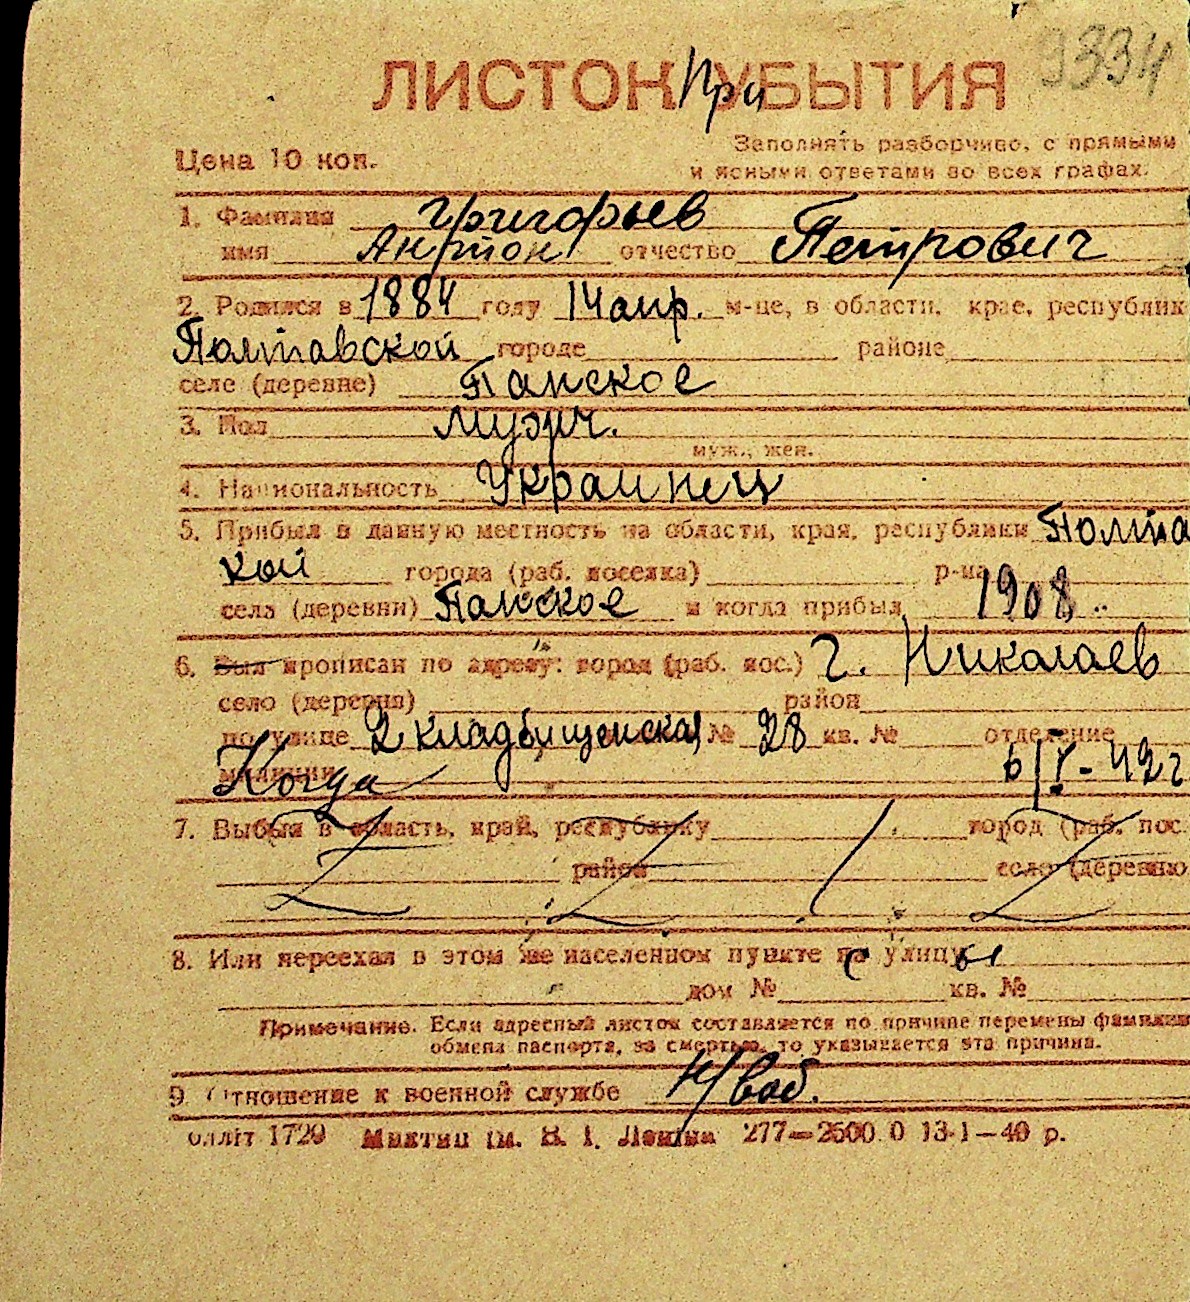 9334
ЛИСТОК При УБЫТИЯ
Цена 10 коп.
Заполнять разборчиво, с прямыми
и ясными ответами во всех графах.
1. Фамилия Григорьев
имя Антон отчество Петрович
2. Родился в 1884 году 14 апр. м-це, в области, крае, республик
Полтавской городе районе
селе (деревне) Панское
3. Пол мужч.
муж., жен.
4. Национальность Украинец
5. Прибыл в данную местность из области, края, республики Полта
кой города (раб. поселка) р-на
села (деревни) Панское и когда прибыл 1908
6. Был прописан по адресу: город (раб. пос.) г. Николаев
село (деревня) район
по улице 2 кладбищенская № 28 кв. № отделение
милиции Когда 6/V-42 г
7. Выбыл в область, край, республику город (раб. пос.
район село (деревню
8. Или переехал в этом же населенном пункте с улицы
дом № кв. №
Примечание. Если адресный листок составляется по причине перемены фамилии
обмена паспорта, за смертью, то указывается эта причина.
9 Отношение к военной службе н/воб.
олліт 1729 Миктип ім. В. І. Леніна 277—2500.0 13-1—40 р.